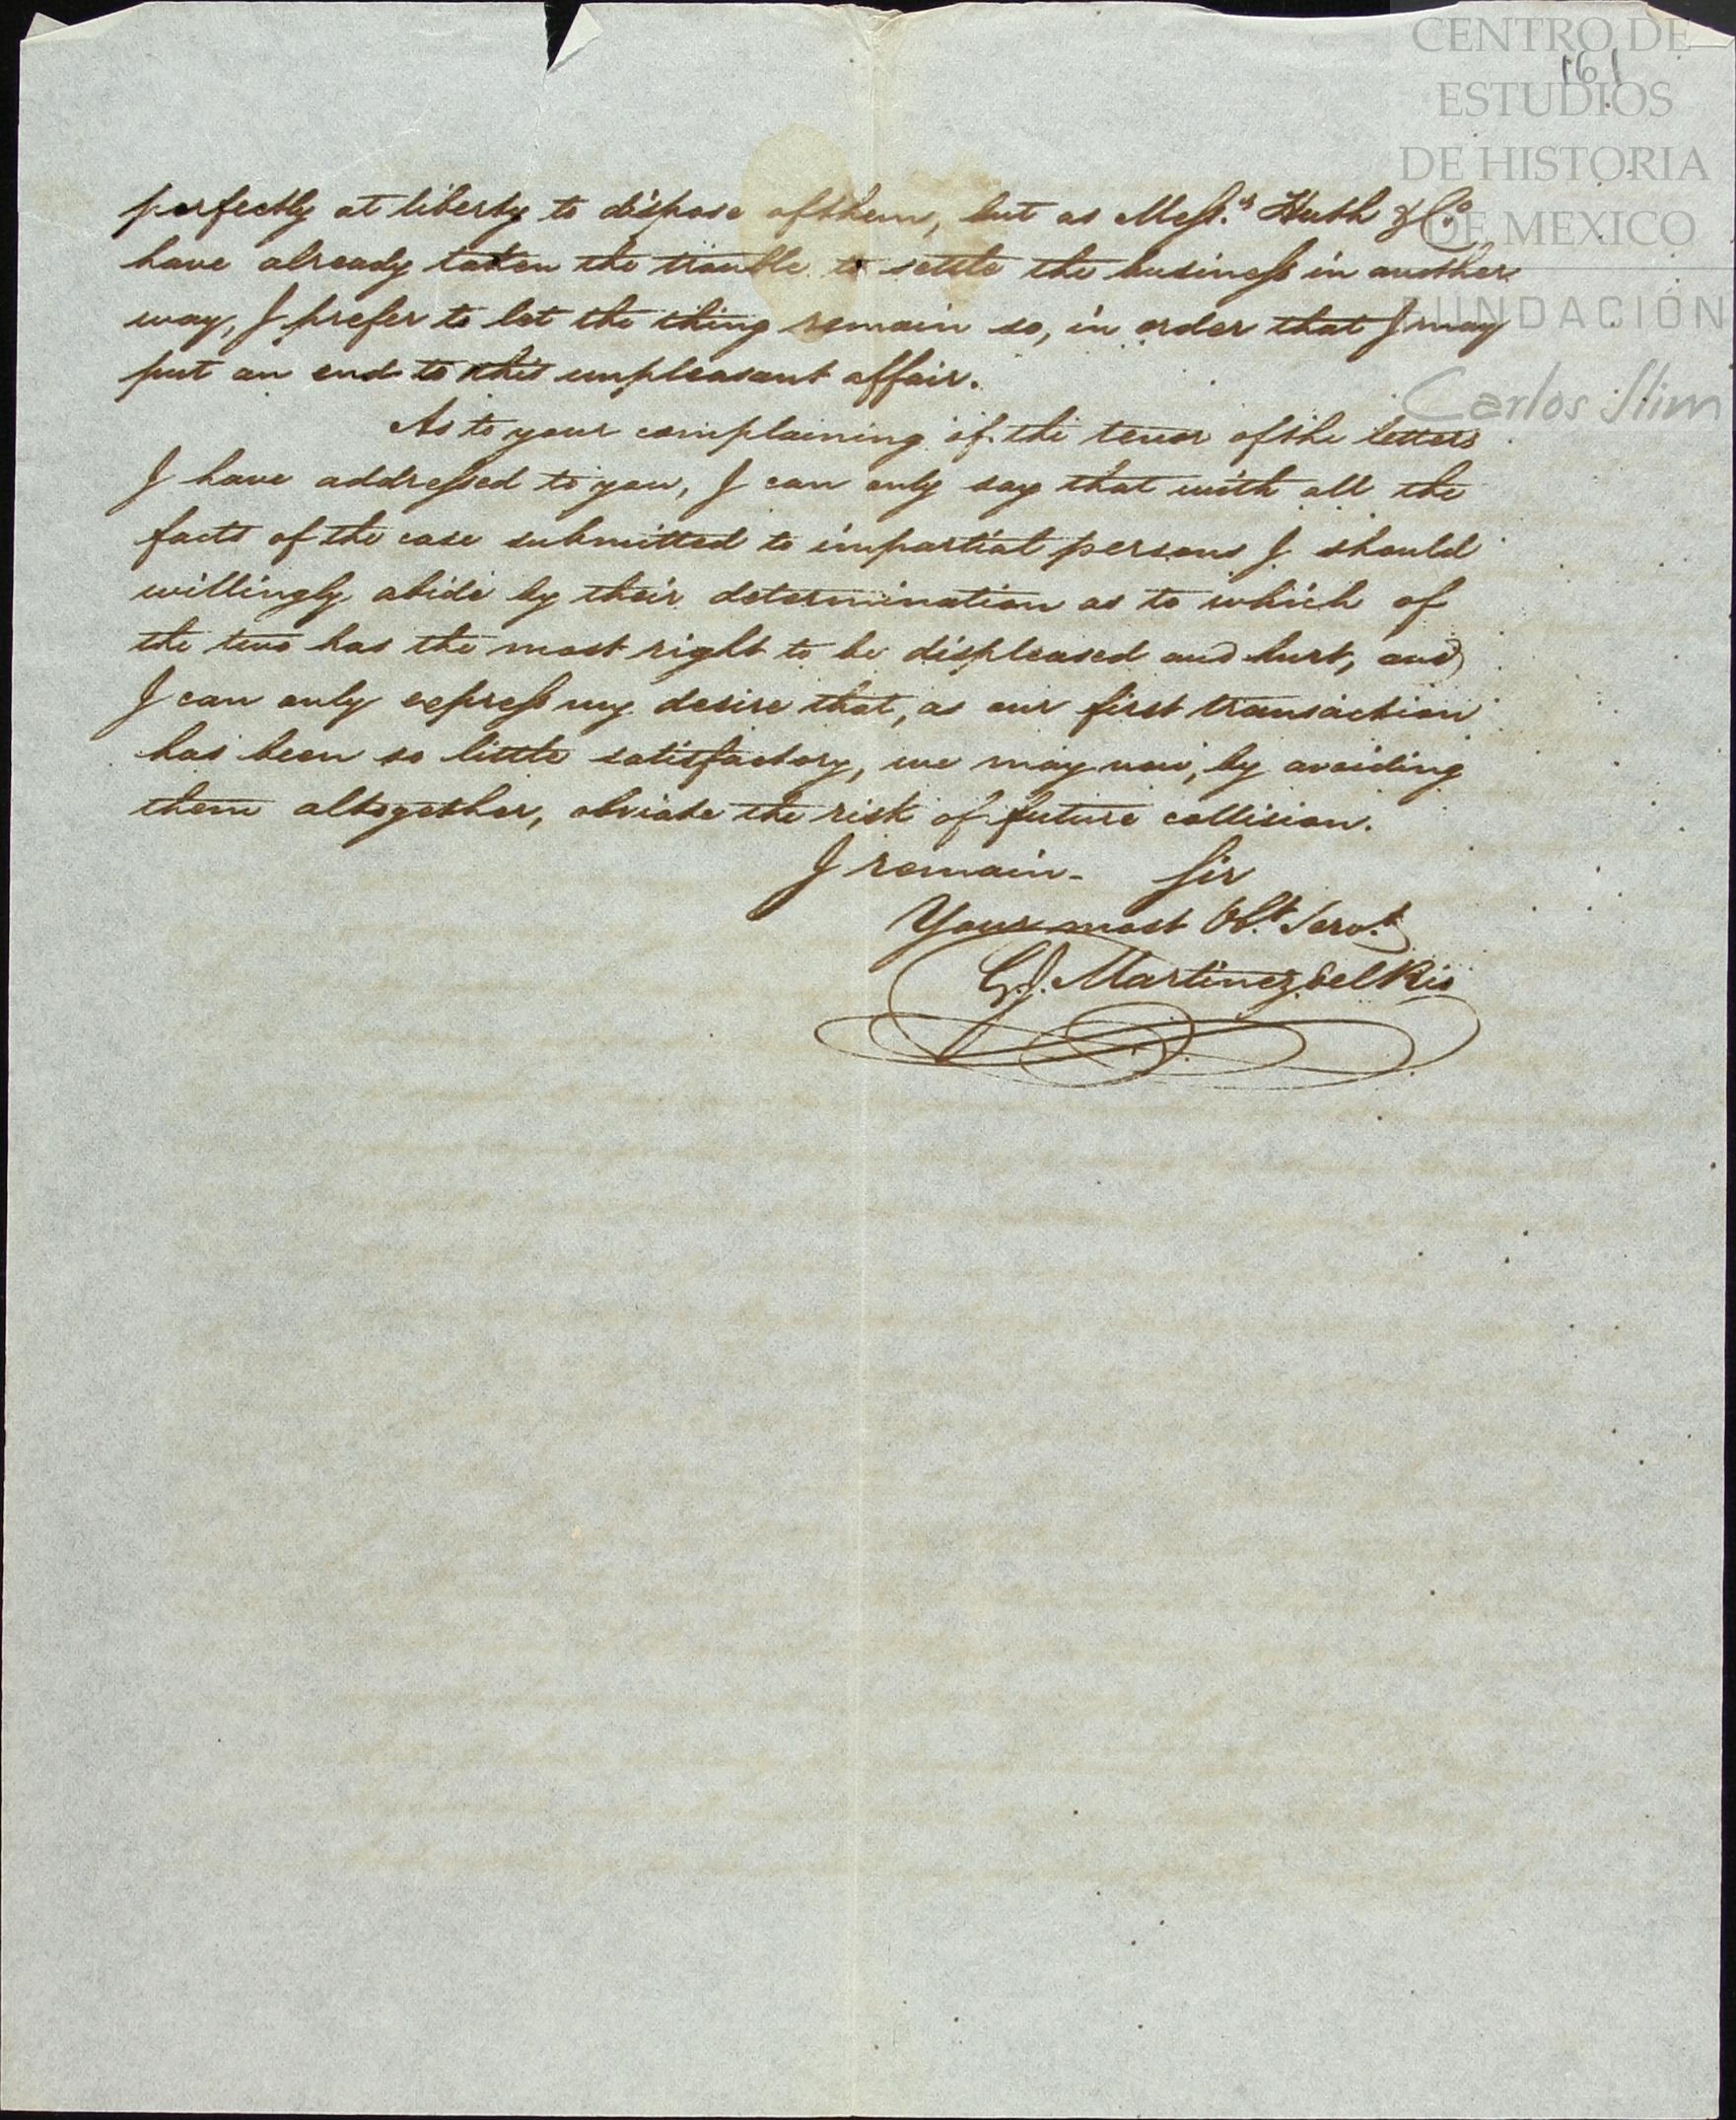 CENTRO DE
161
ESTUDIOS
DE HISTORIA
DE MEXICO
FUNDACIÓN
Carlos Slim
perfectly at liberty to dispose of them, but as Mess.rs Huth & Co.
have already taken the trouble to settle the business in another
way, I prefer to let the thing remain so, in order that I may
put an end to this unpleasant affair.
As to your complaining of the tenor of the letters
I have addressed to you, I can only say that with all the
facts of the case submitted to impartial persons I should
willingly abide by their determination as to which of
the two has the most right to be displeased and hurt, and
I can only express my desire that, as our first transaction
has been so little satisfactory, we may now, by avoiding
them altogether, obviate the risk of future collision.
I remain - Sir
Your most Ob.t Serv.t
G. J. Martinez del Rio